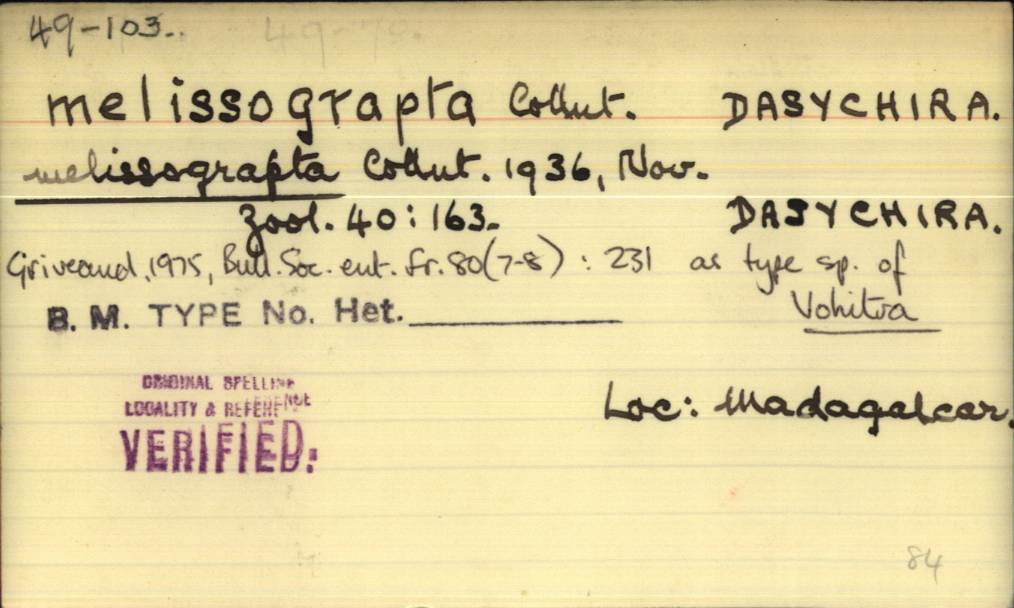 49-103.
49-70.
melissograpta Collnt. DASYCHIRA.
melissograpta Collnt. 1936, Nov.
Zool. 40:163. DASYCHIRA.
Griveaud, 1975, Bull. Soc. ent. fr. 80(7-8): 231 as type sp. of
Vohitra
B. M. TYPE No. Het.
ORIGINAL SPELLING
LOCALITY & REFERENCE
VERIFIED:
Loc: Madagascar.
84